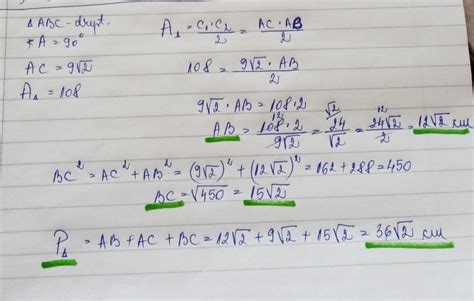 △ABC - drept.
∢A = 90°
AC = 9√2
A△ = 108
A△ = C₁·C₂/2 = AC·AB/2
108 = 9√2·AB/2
9√2·AB = 108·2
AB = 108·2/9√2 = 24/√2 = 24√2/2 = 12√2 cm
BC² = AC² + AB² = (9√2)² + (12√2)² = 162 + 288 = 450
BC = √450 = 15√2
P△ = AB + AC + BC = 12√2 + 9√2 + 15√2 = 36√2 cm